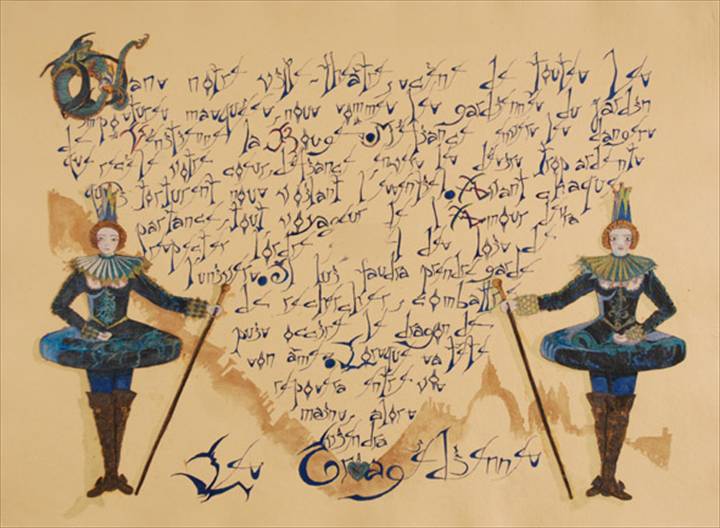 Dans notre ville-théâtre, scène de toutes les
impostures masquées, nous sommes les gardiennes du jardin
de Vénitienne la Rouge. Méfiance envers les dangers
que recèle votre coeur, défiance envers les désirs trop ardents
qui torturent nous voilant l'essentiel. Avant chaque
partance, tout voyageur de l'Amour devra
respecter l'ordre des lois de
l'univers. Il lui faudra prendre garde
de rechercher, combattre
puis occire le dragon de
son âme. Lorsque sa tête
reposera entre vos
mains, alors
viendra
Les Tragédiennes